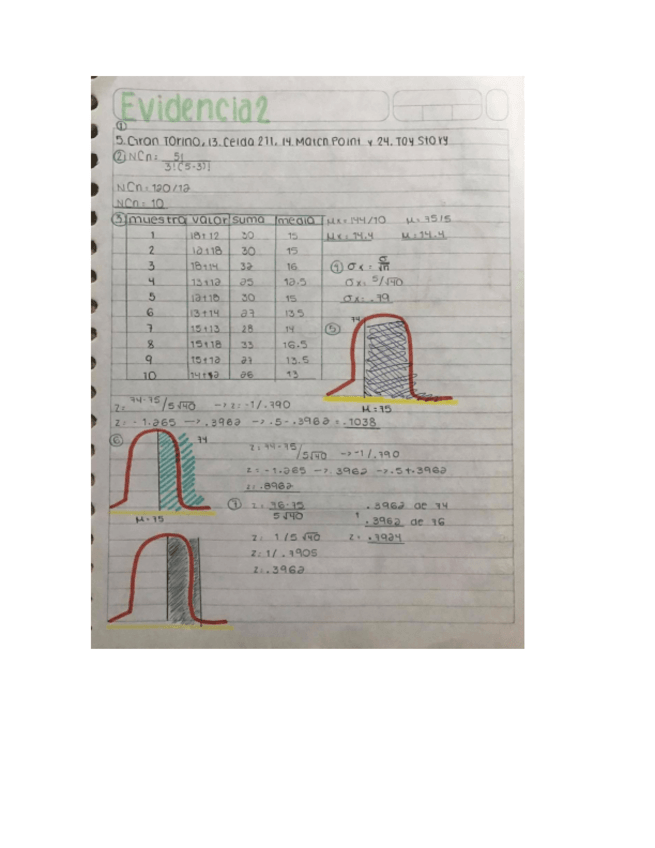 Evidencia 2
①
5. Gran Torino, 13. Celda 211, 14. Match Point y 24. Toy Story
② NCn = 5! / 3!(5-3)!
NCn = 120/12
NCn = 10
③ muestra valor suma media μx = 144/10 μ = 75/5
1 18+12 30 15 μx = 14.4 μ = 14.4
2 12+18 30 15
3 18+14 32 16 ④ σx = σ/√n
4 13+12 25 12.5 σx = 5/√40
5 12+18 30 15 σx = .79
6 13+14 27 13.5
7 15+13 28 14 ⑤ 74
8 15+18 33 16.5
9 15+12 27 13.5
10 14+12 26 13
μ = 75
z = 74-75/5√40 → z = -1/.790
z = -1.265 → .3962 → .5-.3962 = .1038
⑥ 74
z = 74-75/5√40 → -1/.790
z = -1.265 → .3962 → .5+.3962
z = .8962
μ = 75
⑦ z = 76-75 / 5√40 .3962 de 74
+ .3962 de 76
z = 1/5√40 z = .7924
z = 1/.7905
z = .3962